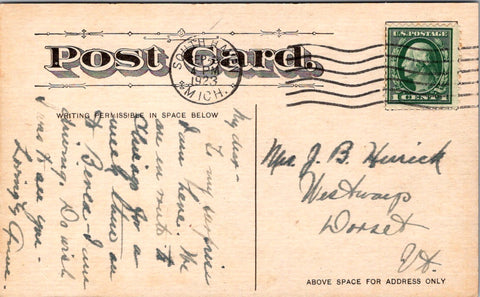 Post Card.
SOUTH
1923
MICH.
U.S. POSTAGE
1 CENT 1
WRITING PERMISSIBLE IN SPACE BELOW
My dear -
To my surprise
I am here. We
are en route to
Chicago for a
week, then on
to Berea - I am
driving. Do wish
to see you -
Lovingly
Mrs J. B. Herrick
Westways
Dorset
Vt.
ABOVE SPACE FOR ADDRESS ONLY